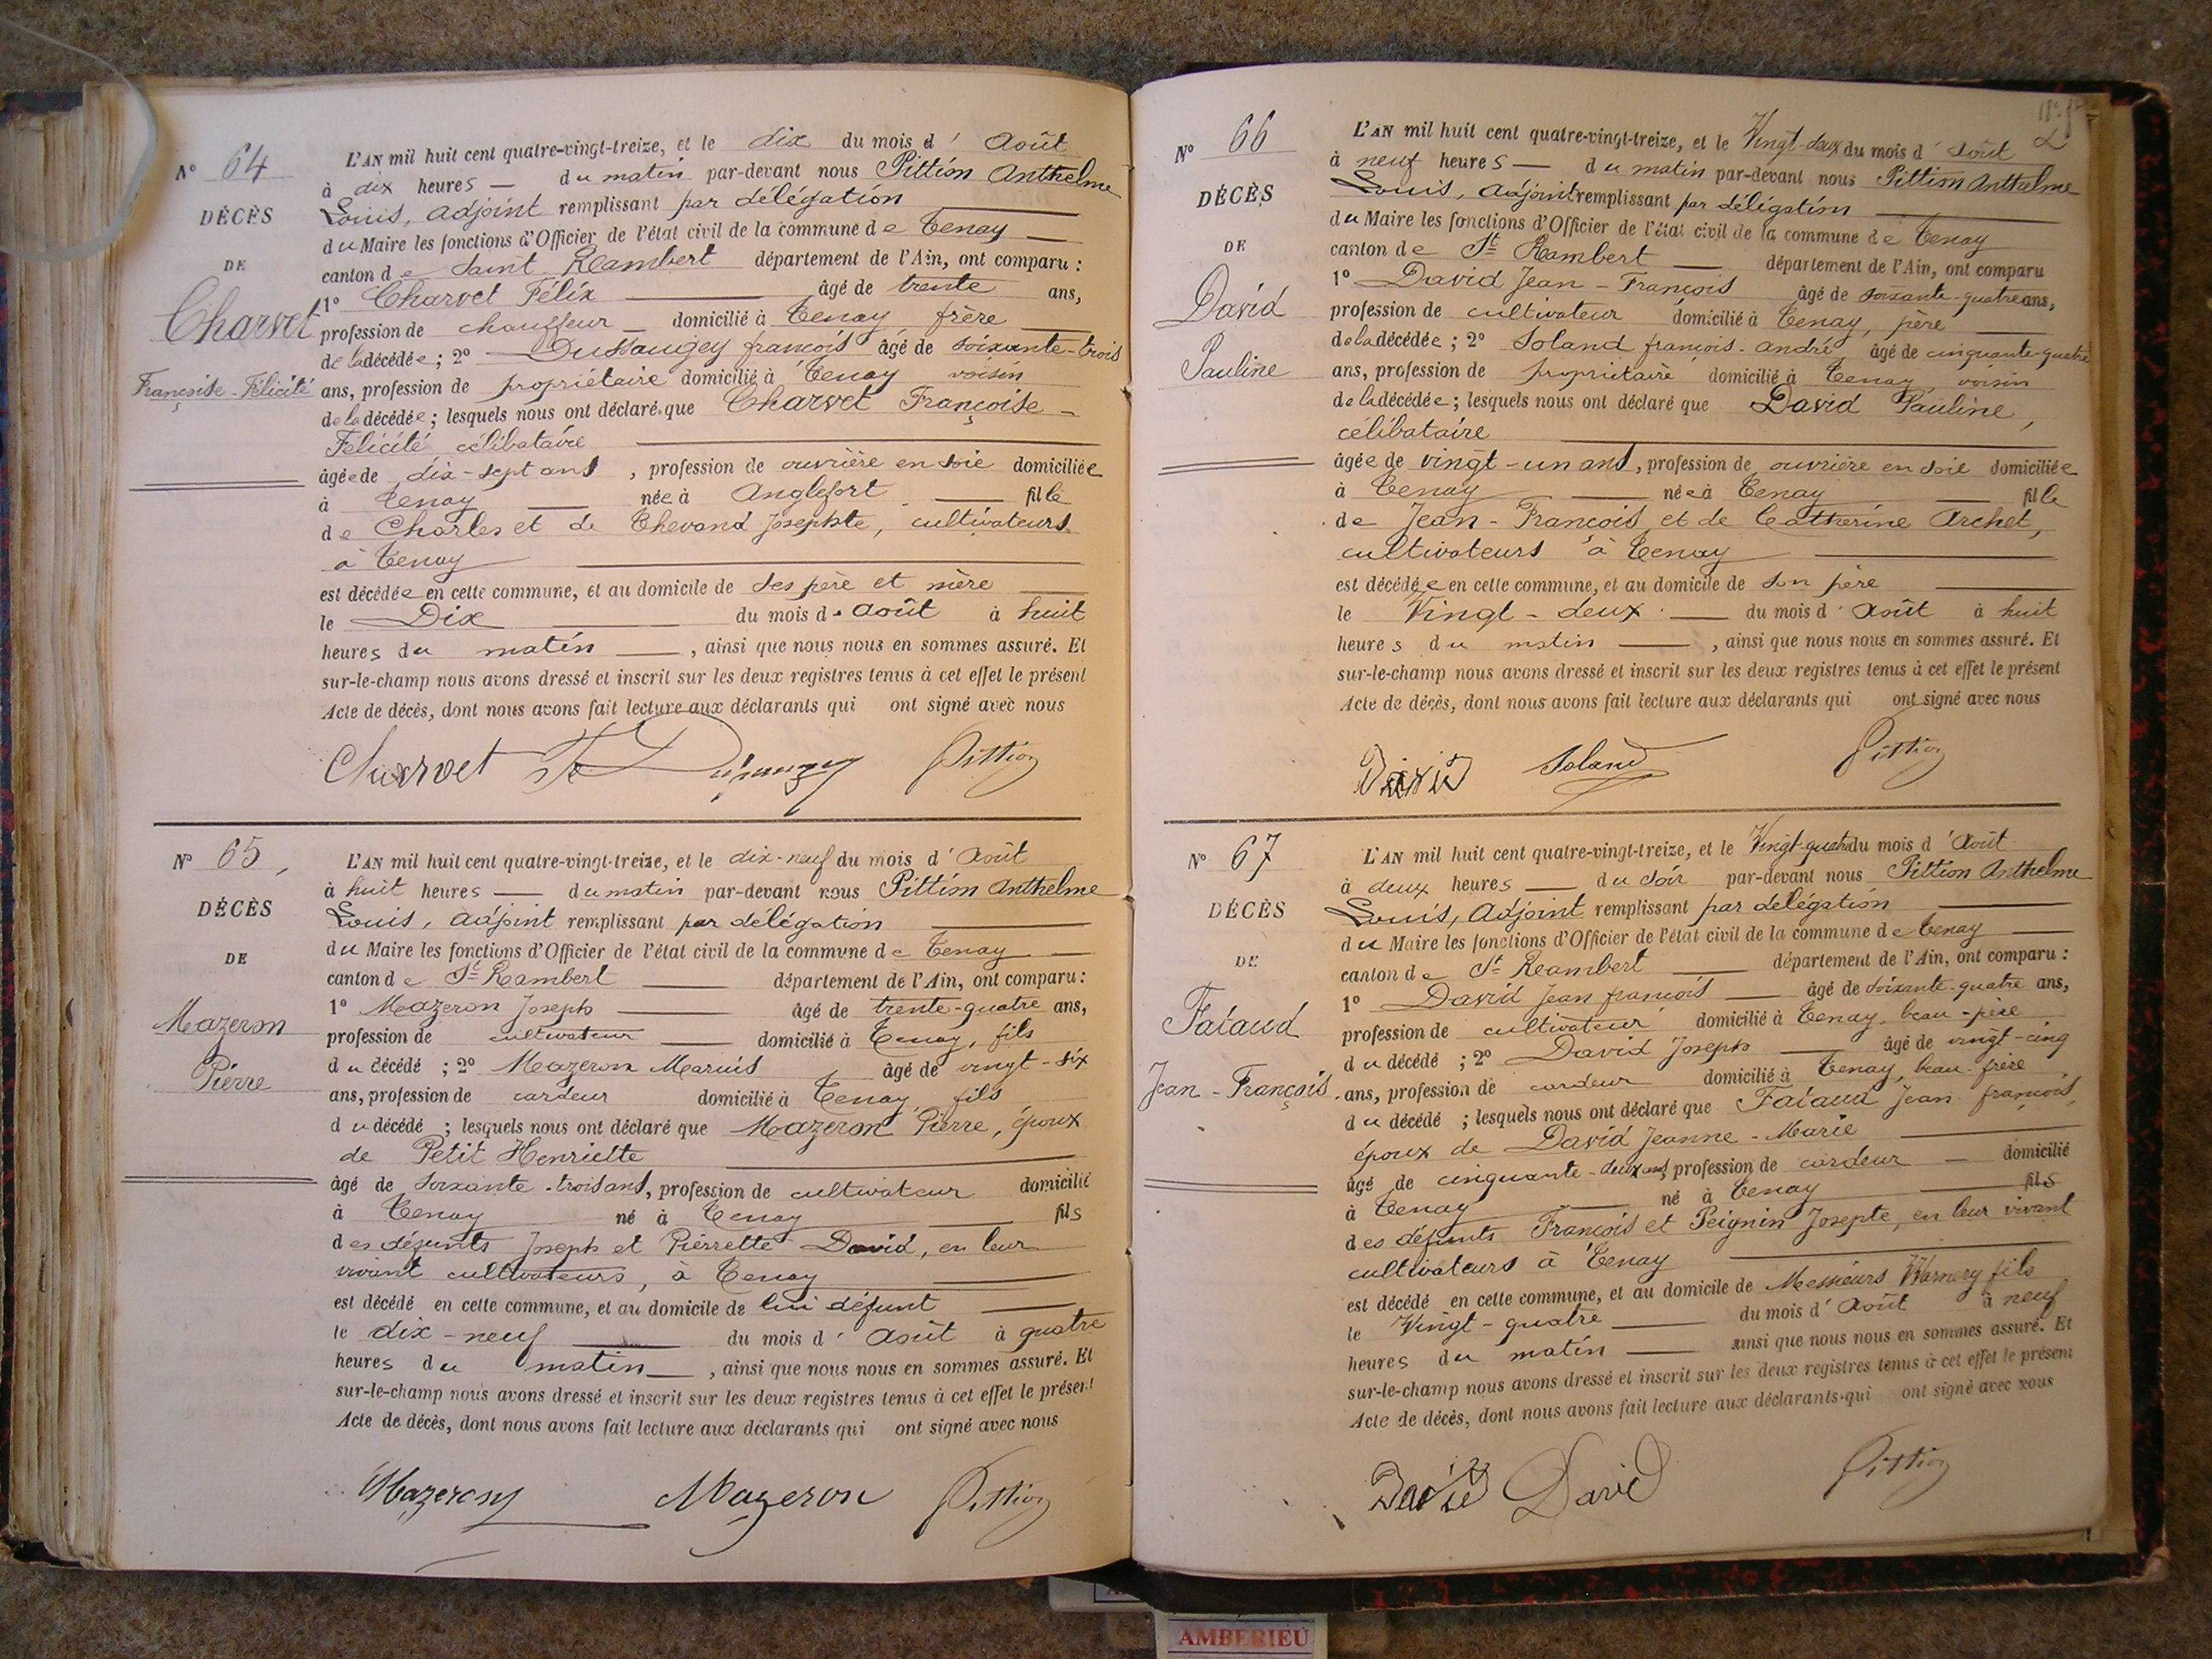 Nº 64
DÉCÈS
DE
Charvet
Françoise-Félicité
L'AN mil huit cent quatre-vingt-treize, et le dix du mois d' Août
à dix heures — du matin par-devant nous Pittion Anthelme
Louis, adjoint remplissant par délégation
du Maire les fonctions d'Officier de l'état civil de la commune de Tenay
canton de Saint Rambert département de l'Ain, ont comparu :
1º Charvet Félix âgé de trente ans,
profession de chauffeur domicilié à Tenay frère
de la décédée ; 2º Dussaugey françois âgé de soixante-trois
ans, profession de propriétaire domicilié à Tenay voisin
de la décédée ; lesquels nous ont déclaré que Charvet Françoise-
Félicité célibataire
âgée de dix-sept ans, profession de ouvrière en soie domiciliée
à Tenay née à Anglefort fille
de Charles et de Thevand Josephte, cultivateurs
à Tenay
est décédée en cette commune, et au domicile de ses père et mère
le Dix du mois d' Août à huit
heures du matin, ainsi que nous nous en sommes assuré. Et
sur-le-champ nous avons dressé et inscrit sur les deux registres tenus à cet effet le présent
Acte de décès, dont nous avons fait lecture aux déclarants qui ont signé avec nous
Charvet Pittion
Nº 65
DÉCÈS
DE
Mazeron
Pierre
L'AN mil huit cent quatre-vingt-treize, et le dix-neuf du mois d' Août
à huit heures — du matin par-devant nous Pittion Anthelme
Louis, adjoint remplissant par délégation
du Maire les fonctions d'Officier de l'état civil de la commune de Tenay
canton de St Rambert département de l'Ain, ont comparu :
1º Mazeron Joseph âgé de trente-quatre ans,
profession de cultivateur domicilié à Tenay, fils
du décédé ; 2º Mazeron Marius âgé de vingt-six
ans, profession de cardeur domicilié à Tenay fils
du décédé ; lesquels nous ont déclaré que Mazeron Pierre, époux
de Petit Henriette
âgé de soixante-trois ans, profession de cultivateur domicilié
à Tenay né à Tenay fils
des défunts Joseph et Pierrette David, en leur
vivant cultivateurs, à Tenay
est décédé en cette commune, et au domicile de lui défunt
le dix-neuf du mois d' Août à quatre
heures du matin, ainsi que nous nous en sommes assuré. Et
sur-le-champ nous avons dressé et inscrit sur les deux registres tenus à cet effet le présent
Acte de décès, dont nous avons fait lecture aux déclarants qui ont signé avec nous
Mazeron Mazeron Pittion
Nº 66
DÉCÈS
DE
David
Pauline
L'AN mil huit cent quatre-vingt-treize, et le Vingt-deux du mois d' Août
à neuf heures — du matin par-devant nous Pittion Anthelme
Louis, adjoint remplissant par délégation
du Maire les fonctions d'Officier de l'état civil de la commune de Tenay
canton de St Rambert département de l'Ain, ont comparu
1º David Jean-François âgé de soixante-quatre ans,
profession de cultivateur domicilié à Tenay, père
de la décédée ; 2º Soland françois-andré âgé de cinquante-quatre
ans, profession de propriétaire domicilié à Tenay, voisin
de la décédée ; lesquels nous ont déclaré que David Pauline,
célibataire
âgée de vingt-un ans, profession de ouvrière en soie domiciliée
à Tenay née à Tenay fille
de Jean-François et de Catherine Archet,
cultivateurs à Tenay
est décédée en cette commune, et au domicile de son père
le Vingt-deux du mois d' Août à huit
heures du matin, ainsi que nous nous en sommes assuré. Et
sur-le-champ nous avons dressé et inscrit sur les deux registres tenus à cet effet le présent
Acte de décès, dont nous avons fait lecture aux déclarants qui ont signé avec nous
David Soland Pittion
Nº 67
DÉCÈS
DE
Falaud
Jean-François
L'AN mil huit cent quatre-vingt-treize, et le Vingt-quatre du mois d' Août
à deux heures — du soir par-devant nous Pittion Anthelme
Louis, Adjoint remplissant par délégation
du Maire les fonctions d'Officier de l'état civil de la commune de Tenay
canton de St Rambert département de l'Ain, ont comparu :
1º David Jean françois âgé de soixante-quatre ans,
profession de cultivateur domicilié à Tenay, beau-père
du décédé ; 2º David Joseph âgé de vingt-cinq
ans, profession de cardeur domicilié à Tenay, beau-frère
du décédé ; lesquels nous ont déclaré que Falaud Jean-françois,
époux de David Jeanne-Marie
âgé de cinquante-deux ans, profession de cardeur domicilié
à Tenay né à Tenay fils
des défunts François et Peignin Josepte, en leur vivant
cultivateurs à Tenay
est décédé en cette commune, et au domicile de Messieurs Warnery fils
le Vingt-quatre du mois d' Août à neuf
heures du matin ainsi que nous nous en sommes assuré. Et
sur-le-champ nous avons dressé et inscrit sur les deux registres tenus à cet effet le présent
Acte de décès, dont nous avons fait lecture aux déclarants qui ont signé avec nous
David David Pittion
AMBERIEU